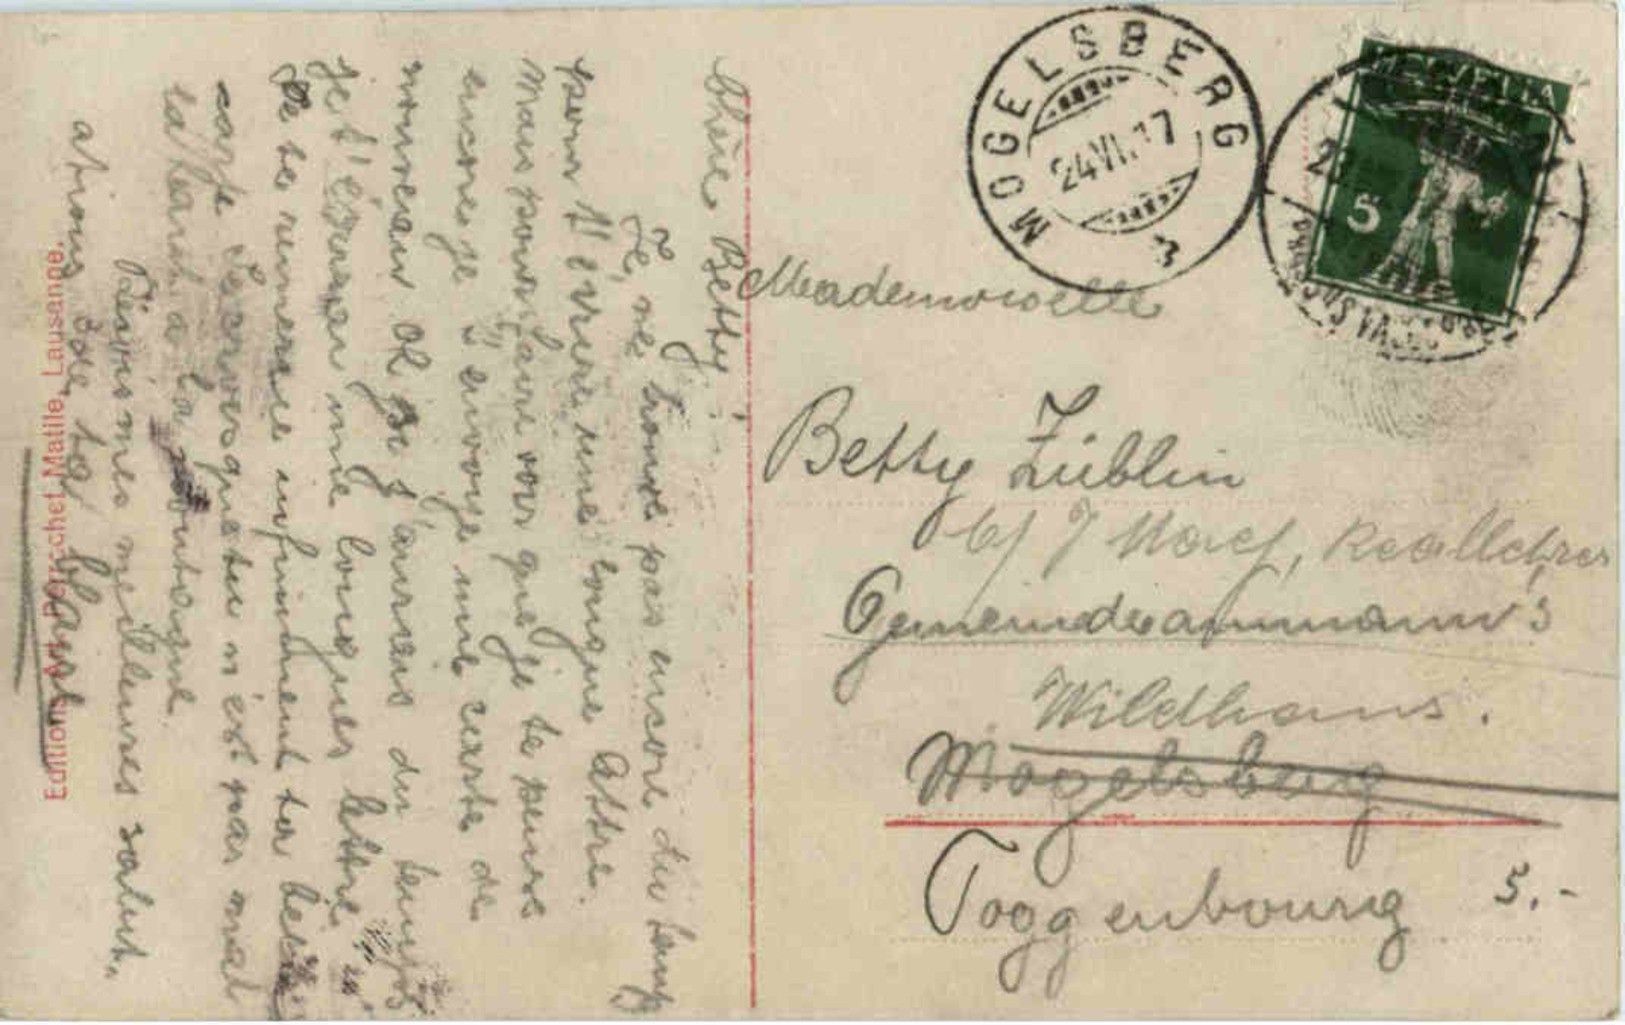 Chère Betty!
Je, ne trouve pas encore du temp
pour t'écrire une longue lettre.
Mais pour faire voir que je te pense
encore je t'envoye une carte de
nouveau. Oh si j'aurais du temps
je t'écrirai une longues lettre
Je te remercie infiniment ta
carte. Je crois que tu n'est pas mal
là haut à la montagne.
Reçois mes meilleures salut.
Editions Art. Perrochet Matile, Lausanne.
MOGELSBERG
24.VI.17
3
HELVETIA
5
Mademoiselle
Betty Züblin
b/ J Näef, Reallehrer
Gemeindeammann's
Wildhaus.
Mogelsberg
Toggenbourg
3.-